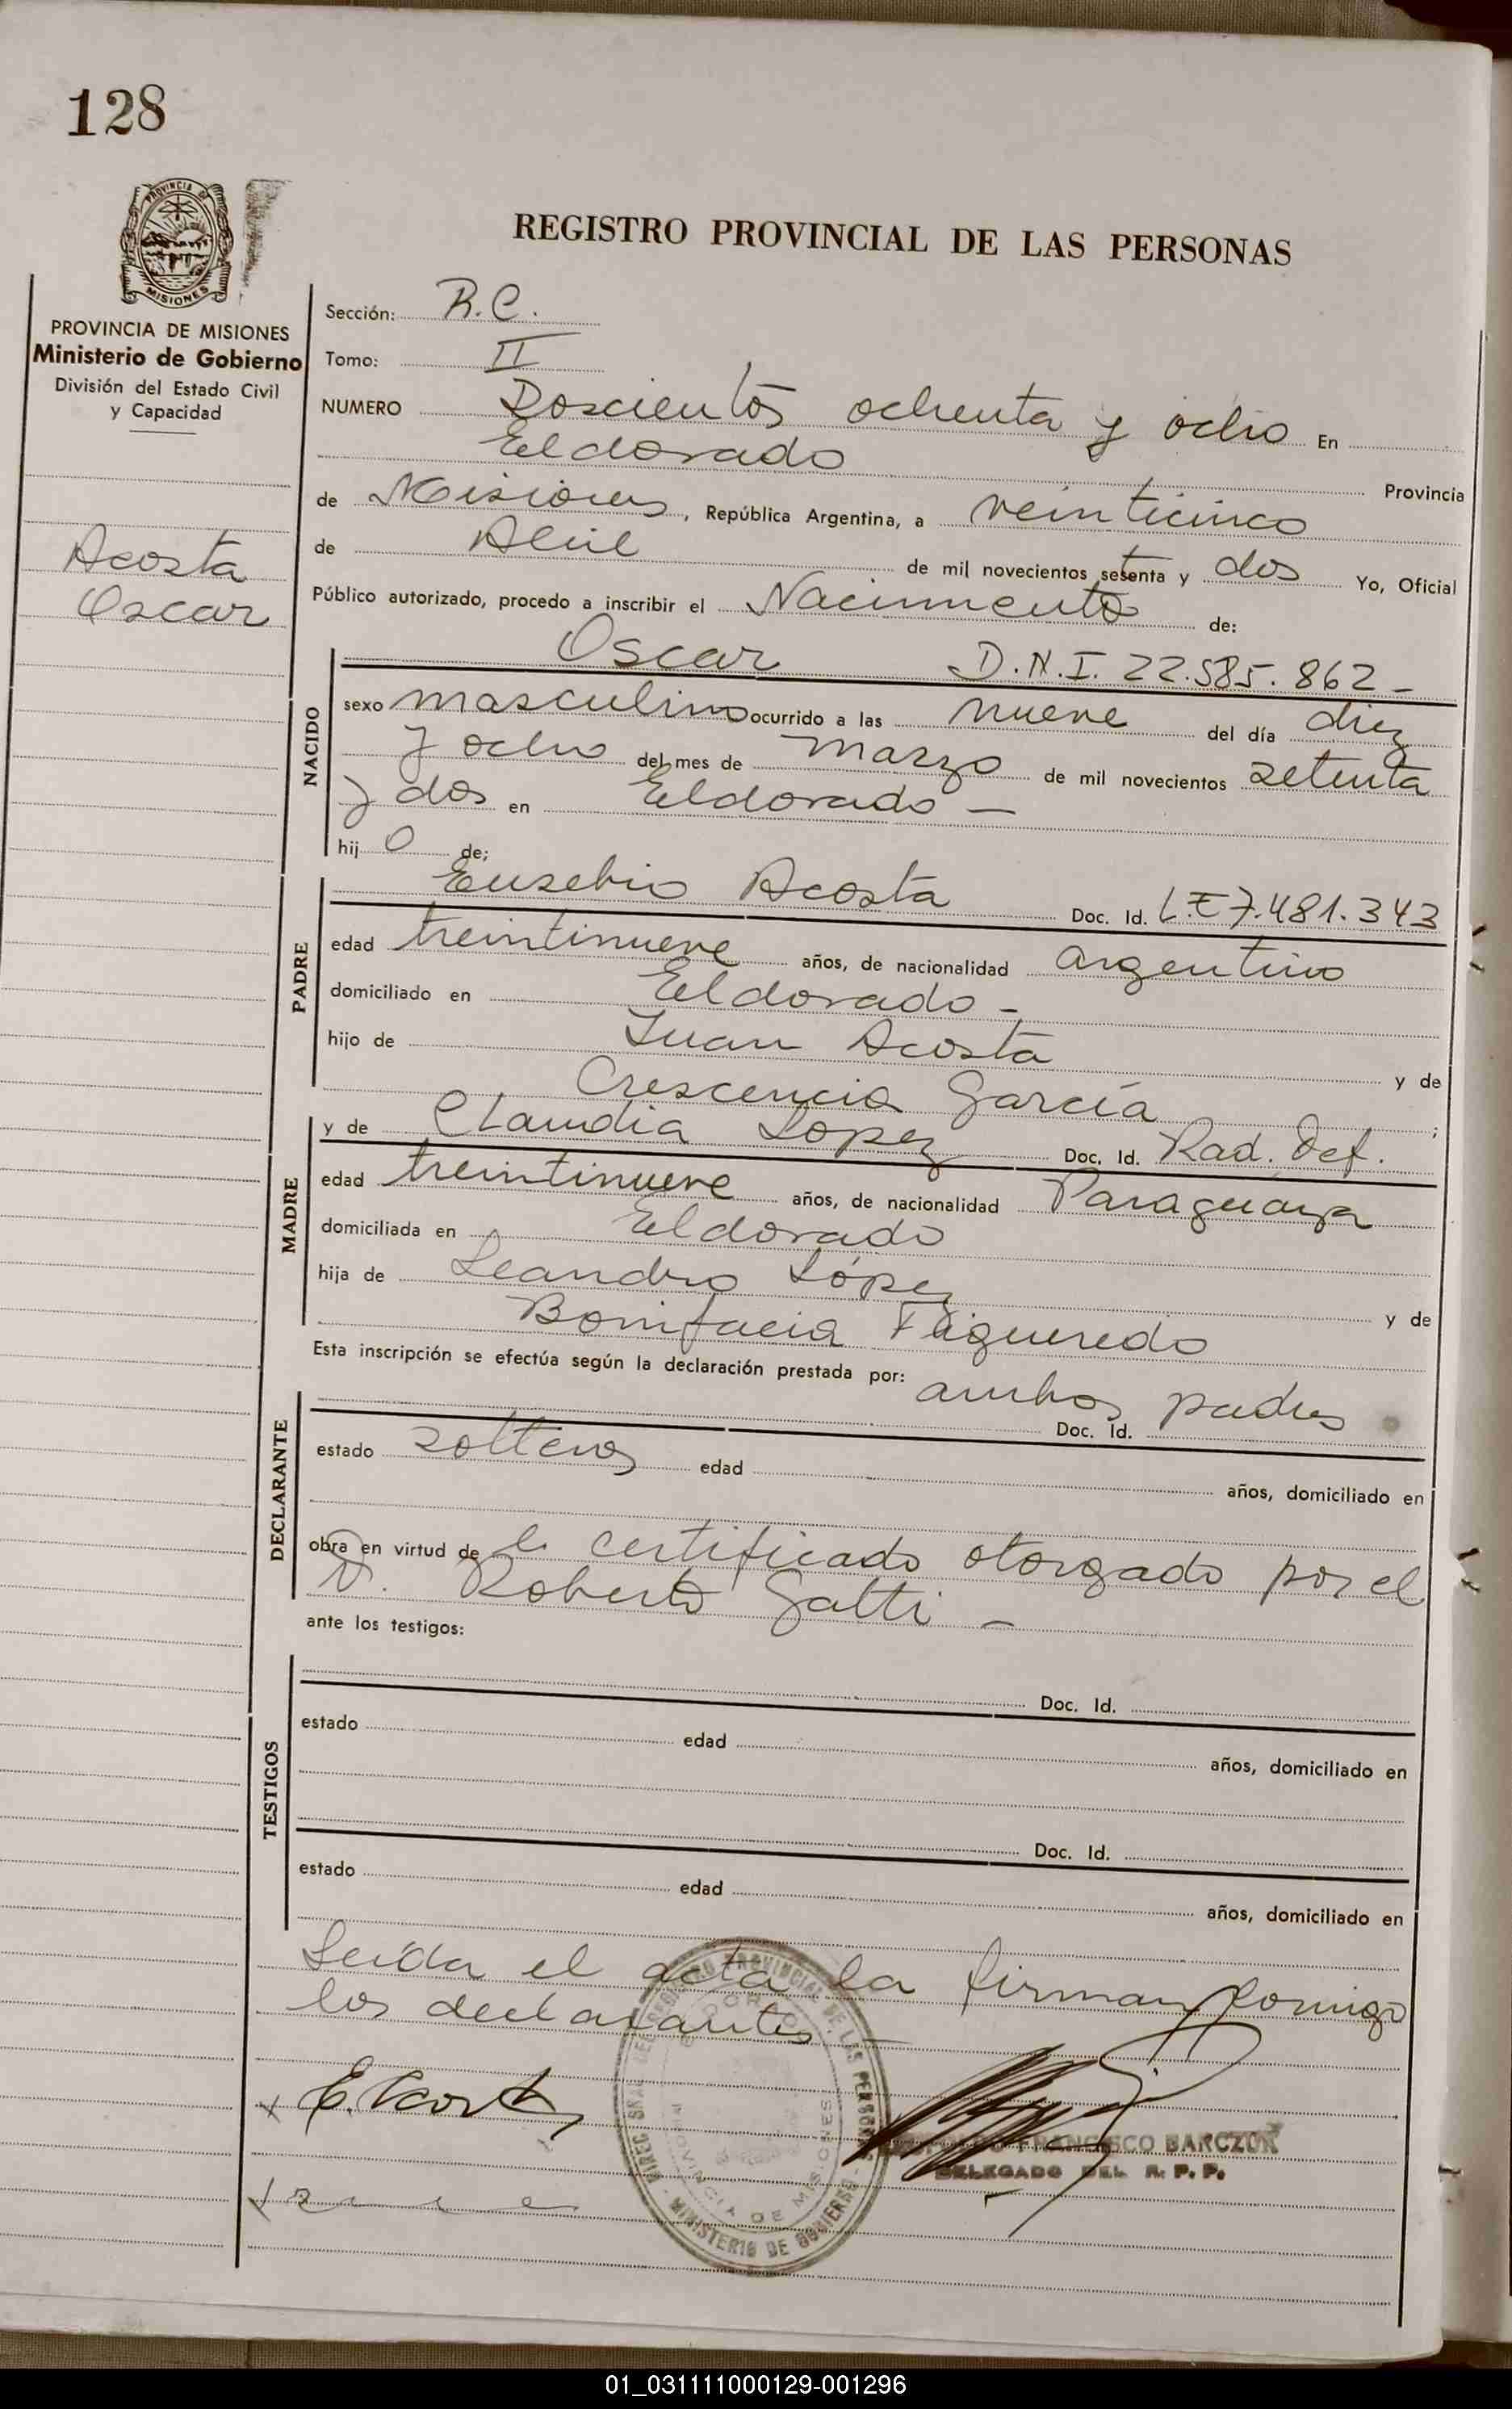 128
PROVINCIA DE MISIONES
PROVINCIA DE MISIONES
Ministerio de Gobierno
División del Estado Civil
y Capacidad
Acosta
Oscar
REGISTRO PROVINCIAL DE LAS PERSONAS
Sección: R.C.
Tomo: II
NUMERO Doscientos ochenta y ocho En
Eldorado Provincia
de Misiones, República Argentina, a veinticinco
de Abril de mil novecientos setenta y dos Yo, Oficial
Público autorizado, procedo a inscribir el Nacimiento de:
NACIDO
Oscar D.N.I. 22.585.862 -
sexo masculino ocurrido a las nueve del día diez
y ocho del mes de marzo de mil novecientos setenta
y dos en Eldorado -
hij o de;
PADRE
Eusebio Acosta Doc. Id. L.E 7.481.343
edad treintinueve años, de nacionalidad argentino
domiciliado en Eldorado -
hijo de Juan Acosta y de
Crescencia García ;
MADRE
y de Claudia Lopez Doc. Id. Rad. Def.
edad treintinueve años, de nacionalidad Paraguaya
domiciliada en Eldorado
hija de Leandro López y de
Bonifacia Figueredo
Esta inscripción se efectúa según la declaración prestada por: ambos padres
DECLARANTE
Doc. Id.
estado solteros edad años, domiciliado en
obra en virtud de certificado otorgado por el
D. Roberto Gatti -
ante los testigos:
TESTIGOS
Doc. Id.
estado edad años, domiciliado en
Doc. Id.
estado edad años, domiciliado en
Leída el acta la firman conmigo
los declarantes
E. Acosta
DIREC GRAL DEL REGISTRO PROVINCIAL DE LAS PERSONAS
ELDORADO
PROVINCIA DE MISIONES
MINISTERIO DE GOBIERNO
FRANCISCO BARCZUK
DELEGADO DEL R. P. P.
01_031111000129-001296